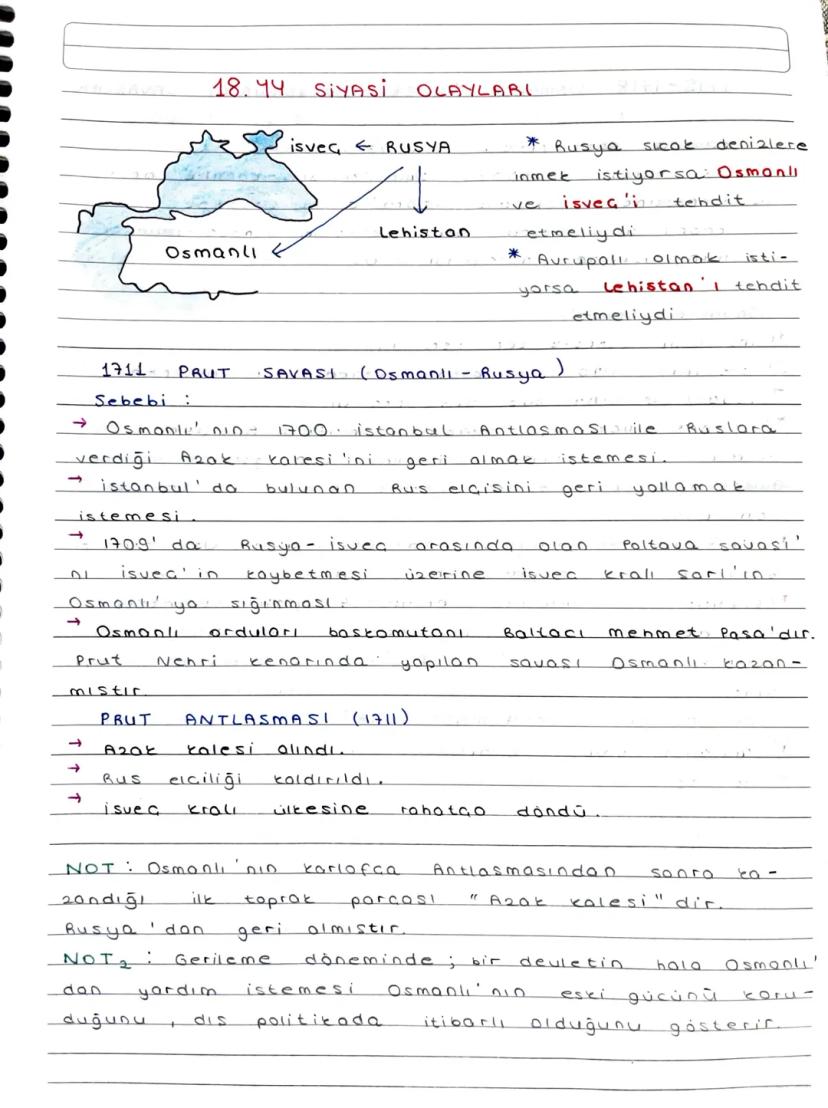 18.YY SİYASİ OLAYLARI
isveç ← RUSYA
Lehistan
Osmanlı
* Rusya sıcak denizlere
inmek istiyorsa Osmanlı
ve isveç'i tehdit
etmeliydi
* Avrupalı olmak isti-
yorsa Lehistan'ı tehdit
etmeliydi
1711 PRUT SAVASI (Osmanlı - Rusya)
Sebebi :
→ Osmanlı'nın 1700 istanbul Antlasması ile Ruslara
verdiği Azak kalesi'ni geri almak istemesi.
→ istanbul'da bulunan Rus elçisini geri yollamak
istemesi.
→ 1709'da Rusya - isvec arasında olan Poltava savası'
nı isvec'in kaybetmesi üzerine isvec kralı sarl'ın
Osmanlı'ya sığınması.
→ Osmanlı orduları baskomutanı Baltacı mehmet Pasa'dır.
Prut Nehri kenarında yapılan savası Osmanlı kazan-
mıstır.
PRUT ANTLASMASI (1711)
→ Azak kalesi alındı.
→ Rus elciliği kaldırıldı.
→ isveç kralı ülkesine rahatça döndü.
NOT : Osmanlı'nın karlofça Antlasmasından sonra ka-
zandığı ilk toprak parcası "Azak kalesi" dir.
Rusya'dan geri almıstır.
NOT₂ : Gerileme döneminde ; bir devletin hala Osmanlı'
dan yardım istemesi Osmanlı'nın eski gücünü koru-
duğunu , dıs politikada itibarlı olduğunu gösterir.